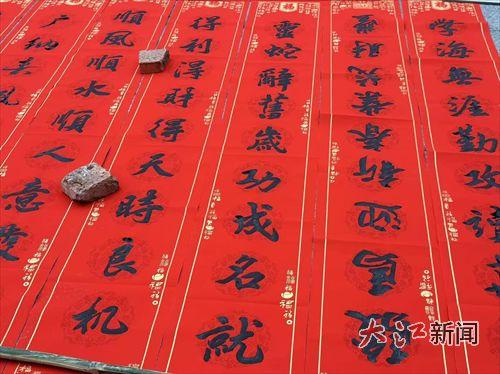 学海無涯勤攻讀
駿馬迎新春業茂財豐
靈蛇辭舊歲功成名就
得利得財得天時良机
順風順水順人意
广纳
大江新闻